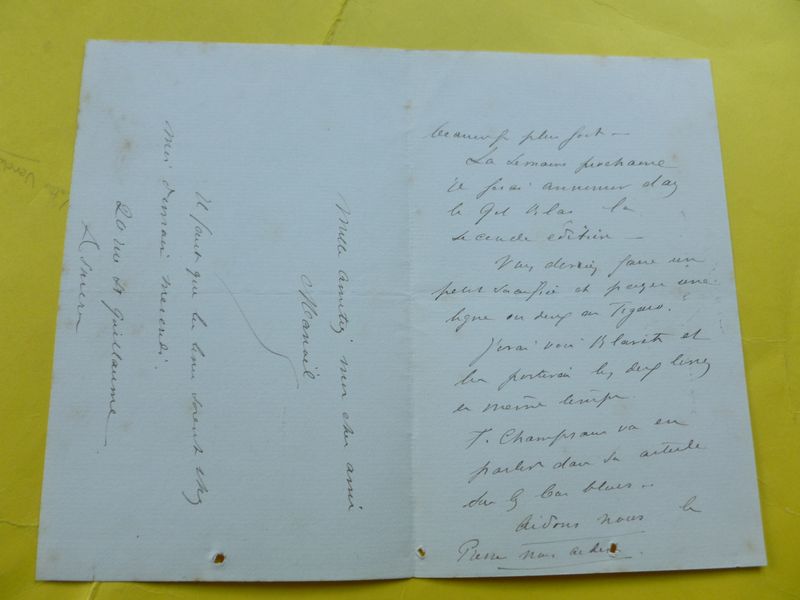 beaucoup plus fort —
La semaine prochaine
je ferai annoncer dans
le Gil Blas la
seconde édition —
Vous devriez faire un
petit sacrifice et payer une
ligne ou deux au Figaro.
J'irai voir et
lui porterai les deux livres
en même temps.
F. Champsaur va en
parler dans son article
sur les bas bleus —
Aidons nous le
Presse nous aidera.
Mille amitiés mon cher ami
Il faut que les bons soient chez
moi demain mercredi.
20 rue St Guillaume —